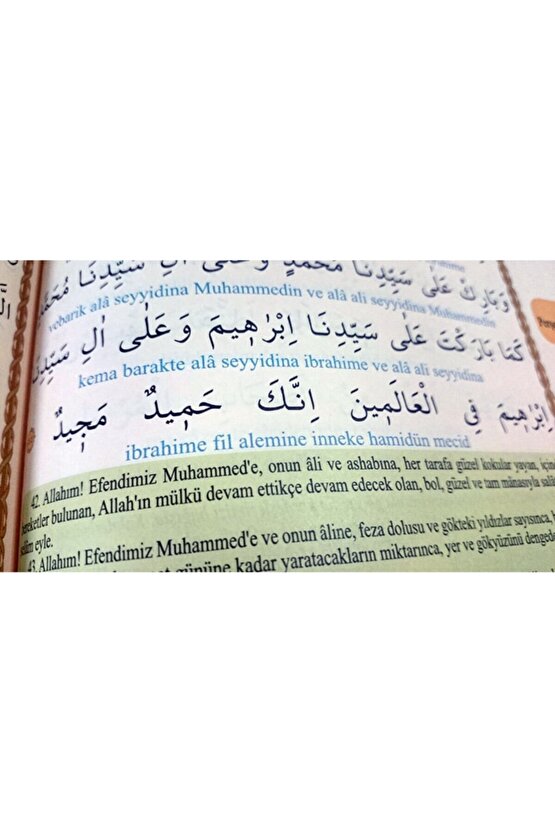 وَبَارِكْ عَلٰى سَيِّدِنَا مُحَمَّدٍ وَعَلٰى اٰلِ سَيِّدِنَا
vebarik alâ seyyidina Muhammedin ve alâ ali seyyidina Muhammedin
كَمَا بَارَكْتَ عَلٰى سَيِّدِنَا اِبْرٰهِيمَ وَعَلٰى اٰلِ سَيِّدِنَا
kema barakte alâ seyyidina ibrahime ve alâ ali seyyidina
اِبْرٰهِيمَ فِي الْعَالَمِينَ اِنَّكَ حَمِيدٌ مَجِيدٌ
ibrahime fil alemine inneke hamidün mecid
42. Allahım! Efendimiz Muhammed'e, onun âli ve ashabına, her tarafa güzel kokular yayan,
bereketler bulunan, Allah'ın mülkü devam ettikçe devam edecek olan, bol, güzel ve tam mânasıyla
eyle.
43. Allahım! Efendimiz Muhammed'e ve onun âline, feza dolusu ve gökteki yıldızlar sayısınca,
gününe kadar yaratacakların miktarınca, yer ve gökyüzünü